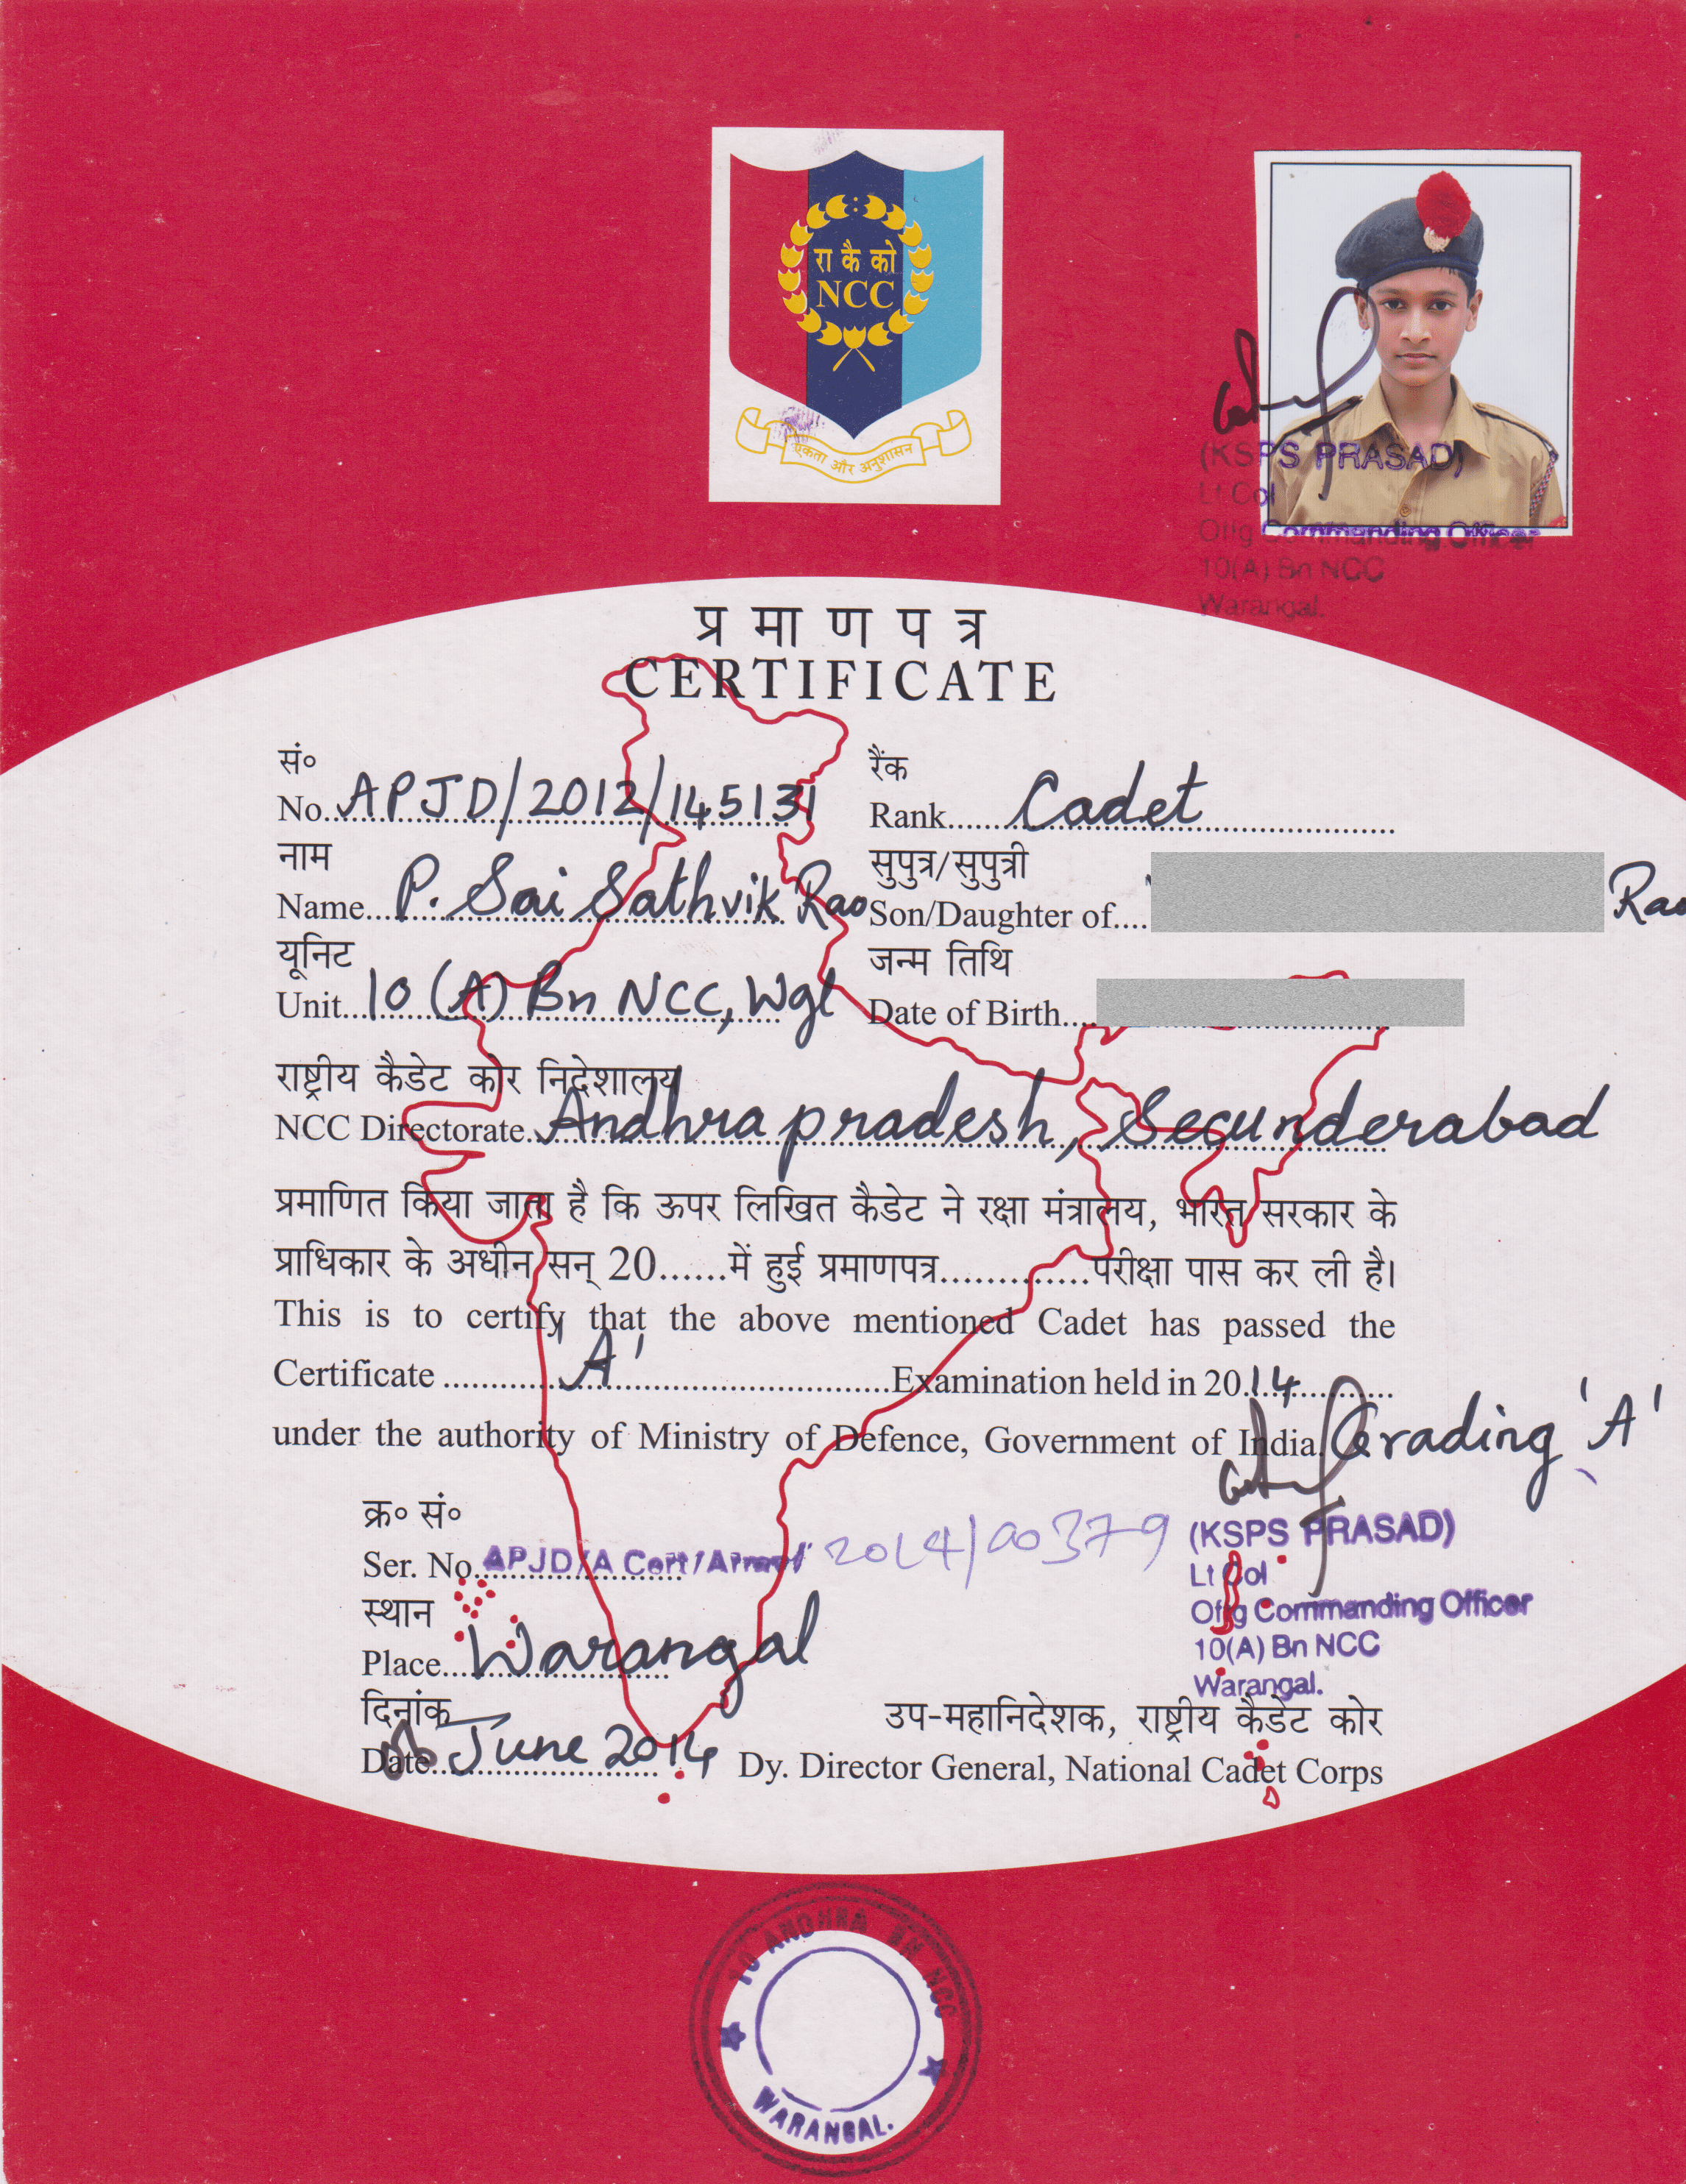 रा कै को
NCC
एकता और अनुशासन
(KSPS PRASAD)
Lt Col
Offg Commanding Officer
10(A) Bn NCC
Warangal.
प्रमाणपत्र
CERTIFICATE
सं०
No. APJD/2012/145131
रैंक
Rank Cadet
नाम
Name P. Sai Sathvik Rao
सुपुत्र/सुपुत्री
Son/Daughter of Rao
यूनिट
Unit 10 (A) Bn NCC, Wgl
जन्म तिथि
Date of Birth
राष्ट्रीय कैडेट कोर निदेशालय
NCC Directorate Andhra pradesh, Secunderabad
प्रमाणित किया जाता है कि ऊपर लिखित कैडेट ने रक्षा मंत्रालय, भारत सरकार के
प्राधिकार के अधीन सन् 20......में हुई प्रमाणपत्र..............परीक्षा पास कर ली है।
This is to certify that the above mentioned Cadet has passed the
Certificate 'A' Examination held in 2014
under the authority of Ministry of Defence, Government of India. Grading 'A'
क्र० सं०
Ser. No. APJD/A Cert/Army/ 2014/00379
(KSPS PRASAD)
Lt Col
Offg Commanding Officer
10(A) Bn NCC
Warangal.
स्थान
Place Warangal
दिनांक
Date June 2014
उप-महानिदेशक, राष्ट्रीय कैडेट कोर
Dy. Director General, National Cadet Corps
10 ANDHRA BN NCC
WARANGAL.